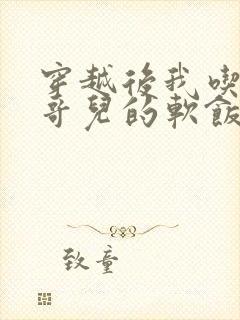 穿越後我喫
哥兒的軟飯
致童